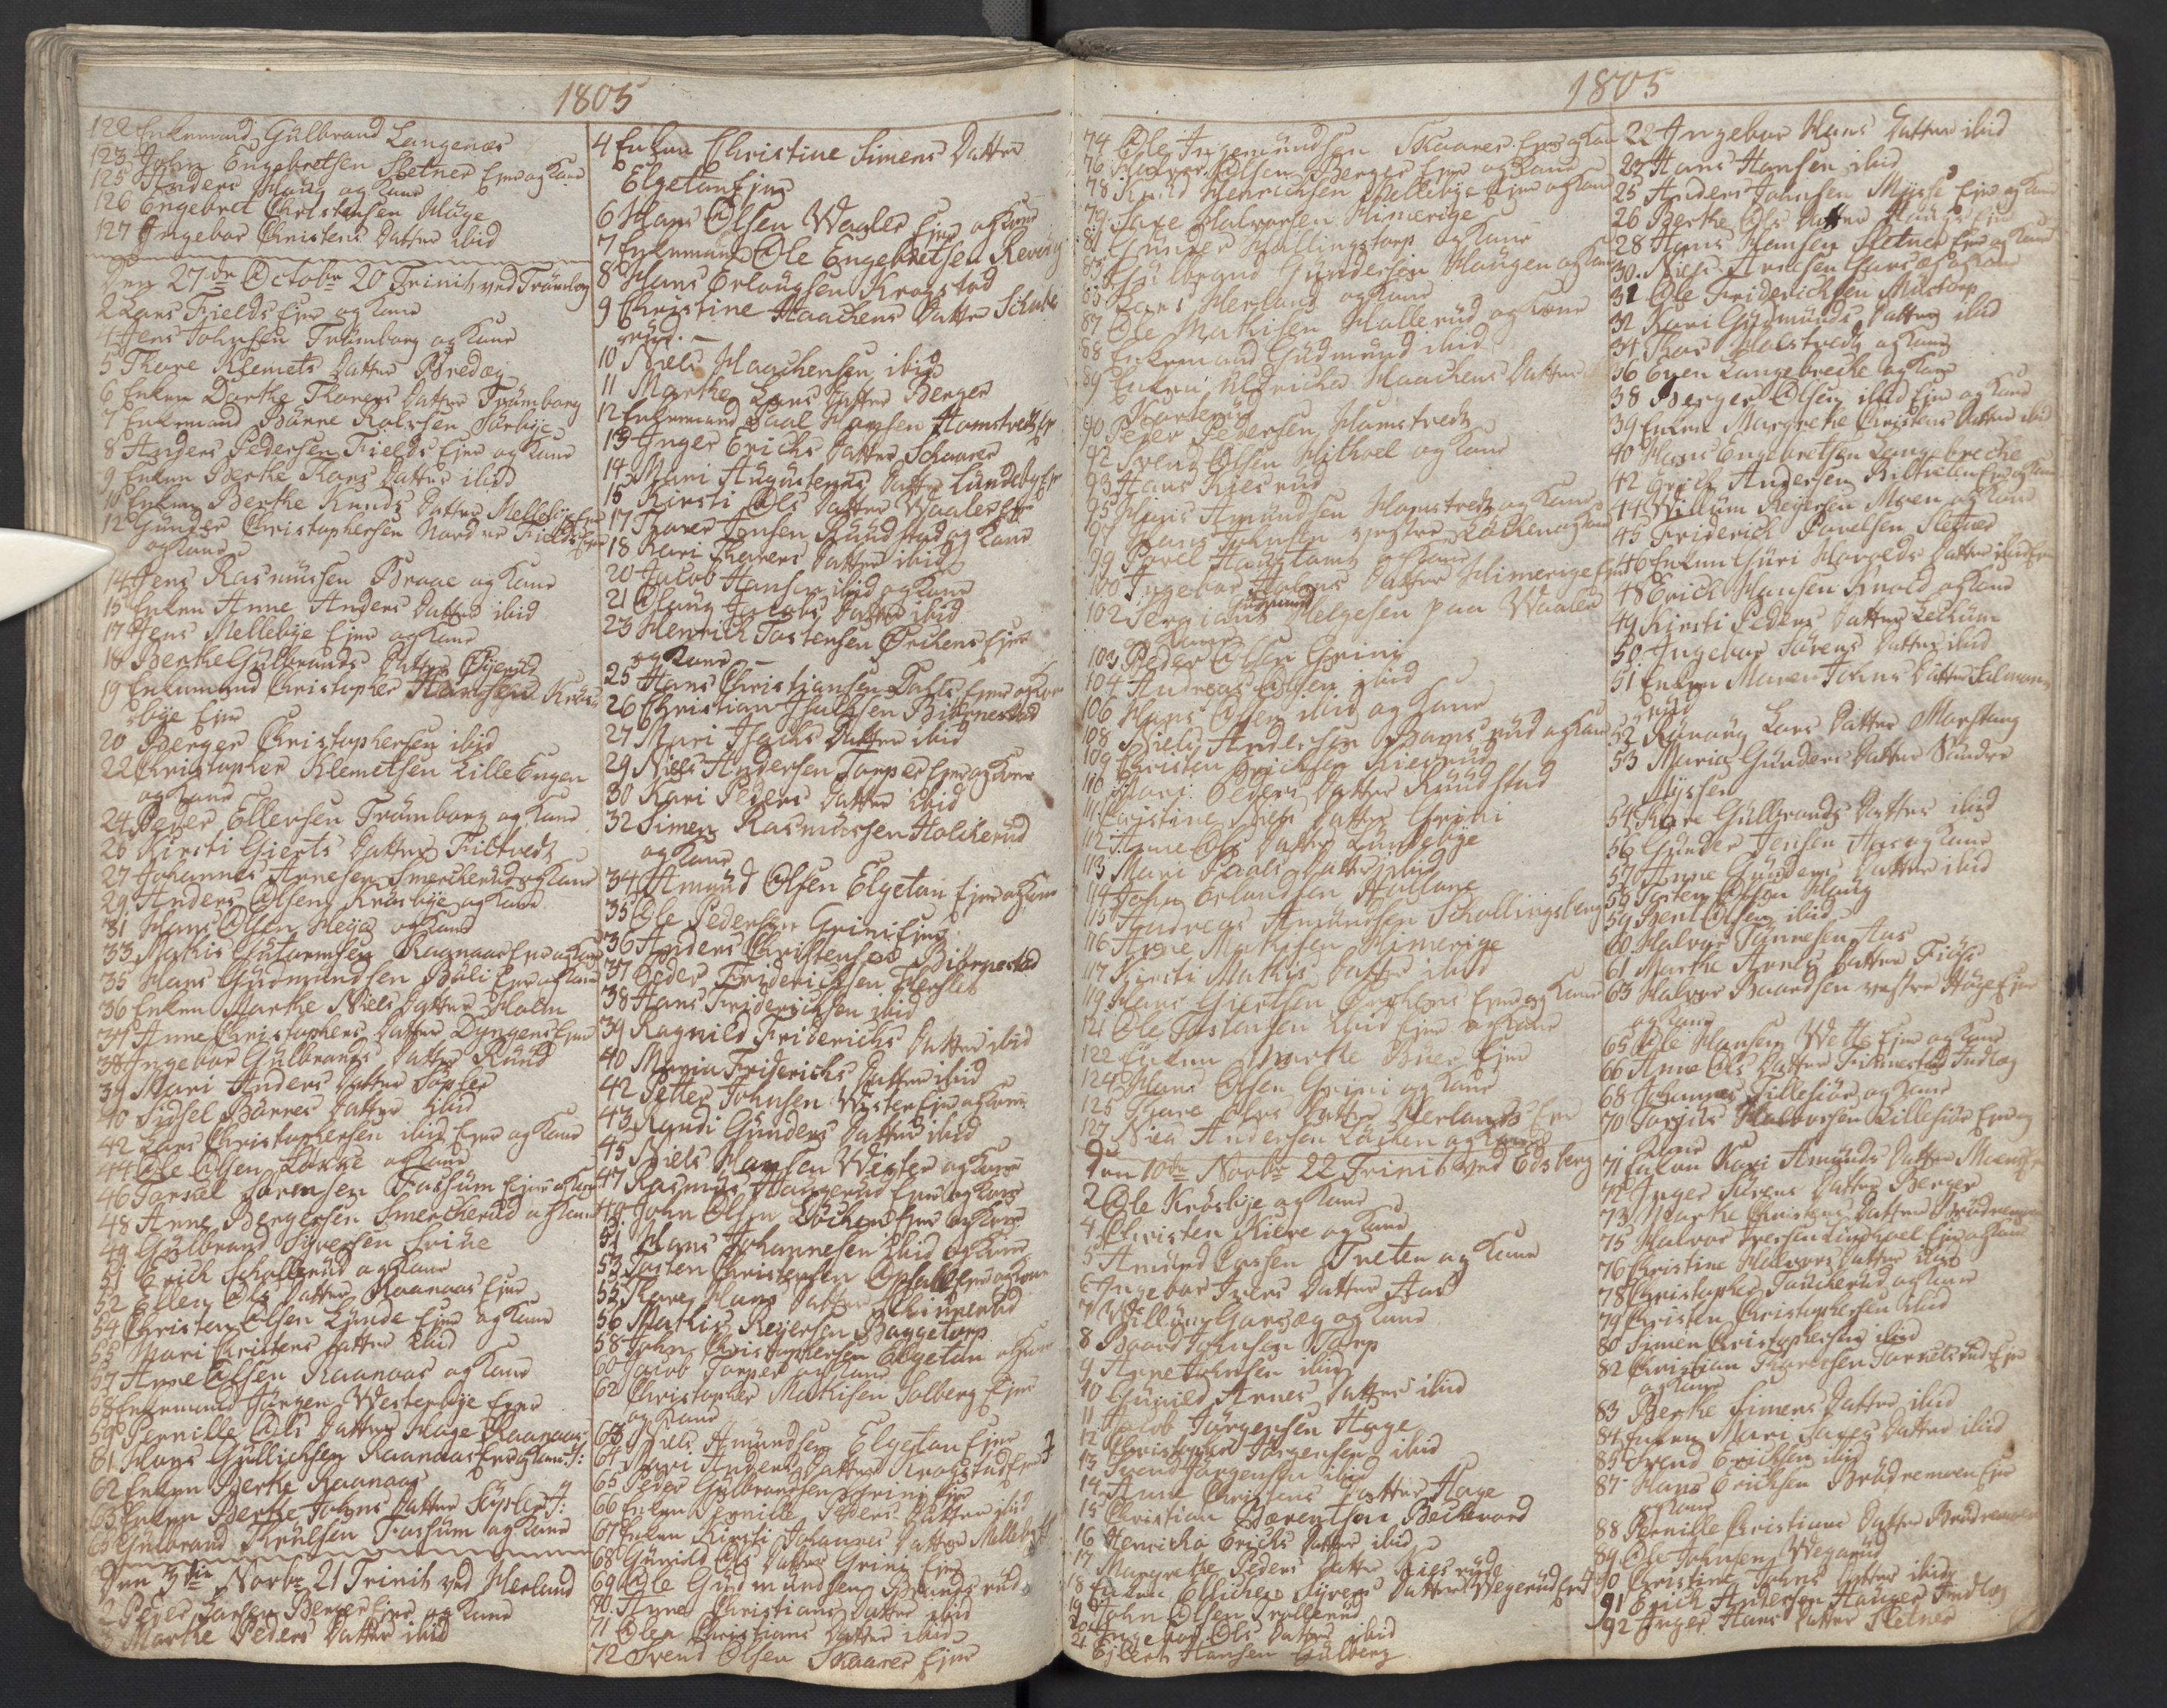 1805
122 Enkemand Gulbrand Langenæs
123 John Engebretsen Sletner Ejer og Kone
125 Anders Haug og Kone
126 Engebret Christensen Hage
127 Ingebor Christens Datter ibid
Den 27de Octobr 20 Trinit: ved Trømborg
2 Lars Fields Ejer og Kone
4 Jens Johnsen Trømborg og Kone
5 Thore Klemets Datter Bredeg
6 Enken Dorthe Thorers Datter Trømborg
7 Enkemand Børre Rolvsen Sørbye
8 Anders Pedersen Fields Ejer og Kone
9 Enken Berthe Lars Datter ibid
10 Enken Berthe Knuds Datter Mellebye Ejer
12 Gunder Christophersen Nordre Fields Ejer
og Kone
14 Jens Rasmussen Braae og Kone
15 Enken Anne Anders Datter ibid
17 Jens Mellebye Ejer og Kone
18 Berthe Gulbrands Datter Øyerud
19 Enkemand Christopher Hansen Kros-
bye Ejer
20 Berger Christophersen ibid
22 Christopher Klemetsen Lille Engen
og Kone
24 Peder Ellersen Trømborg og Kone
25 Kirsti Gierts Datter Filtvedt
27 Johannes Arnesen Smerkerud og Kone
29 Anders Olsen Krosbye og Kone
31 Hans Olsen Heye og Kone
33 Mathis Guttormsen Raanaas Ejer og Kone
35 Hans Gudmundsen Buli Ejer og Kone
36 Enken Marthe Niels Datter Holm
37 Anne Christophers Datter Dyngens Ejer
38 Ingebor Gulbrands Datter Ruud
39 Mari Anders Datter Sopler
40 Sidsel Børres Datter ibid
42 Lars Christophersen ibid Ejer og Kone
44 Ole Olsen Løkke og Kone
46 Torkal Sørensen Fossum Ejer og Kone
48 Anne Bergersen Smerckerud og Kone
49 Gulbrand Syversen Grine
51 Erich Schollerud og Kone
52 Ellen Ols Datter Raanaas Ejer
54 Christen Olsen Lunde Ejer og Kone
55 Mari Christens Datter ibid
57 Arne Olsen Raanaas og Kone
58 Enkemand Jørgen Westerbye Ejer
59 Pernille Ols Datter Hage Raanaas
61 Hans Gullichsen Raanaas Ejer og Kone
62 Enken Berthe Raanaas
63 Enken Berthe Johns Datter Sopler
65 Gulbrand Truelsen Fossum og Kone
Den 3die Novbr 21 Trinit: ved Herland
2 Peder Larsen Berger Ejer og Kone
3 Marthe Peders Datter ibid
4 Enken Christine Simens Datter
Elgetun Ejer
6 Hans Olsen Waaler Ejer og Kone
7 Enkemand Ole Engebretsen Revoug
8 Hans Erlougsen Krogstad
9 Christine Haachens Datter Schube-
rud
10 Niels Haachensen ibid
11 Marthe Lars Datter Berger
12 Enkemand Paal Hansen Homstvedt Ejer
13 Inger Erichs Datter Schaarer
14 Mari Augustenus Datter Lundeby Ejer
15 Kirsti Ols Datter Waaler Ejer
17 Thorer Jensen Rundstad og Kone
18 Kari Thorers Datter ibid
20 Jacob Hansen ibid og Kone
21 Aslaug Jacobs Datter ibid
23 Henrich Tostensen Ørchens Ejer
og Kone
25 Hans Christiansen Kahls Ejer og Kone
26 Christian Isachsen Biørnestad
27 Mari Isachs Datter ibid
29 Niels Andersen Torper Ejer og Kone
30 Kari Peders Datter ibid
32 Simen Rasmussen Holcherud
og Kone
34 Amund Olsen Elgetun Ejer og Kone
35 Ole Pedersen Grini Ejer
36 Anders Christensen Biørnestad
37 Peder Friderichsen Herslet
38 Hans Friderichsen ibid
39 Ragnild Friderichs Datter ibid
40 Maria Friderichs Datter ibid
42 Petter Johnsen Wister Ejer og Kone
43 Randi Gunders Datter ibid
45 Niels Hansen Wister og Kone
47 Rasmus Haugerud Ejer og Kone
49 John Olsen Løchen Ejer og Kone
51 Hans Johannesen ibid og Kone
53 Tosten Christensen Opsahl Ejer og Kone
55 Thore Hans Datter Schinnerud
56 Mathis Reyersen Baggetorp
58 John Christophersen Elgetun og Kone
60 Jacob Torper og Kone
62 Christopher Mathisen Solberg Ejer
og Kone
63 Niels Amundsen Elgetun Ejer
64 Mari Anders Datter Krogstad Ejer
65 Peder Gulbrandsen Grini Ejer
66 Enken Pernille Peders Datter ibid
67 Enken Kirsti Johannes Datter Mellebye
68 Gunild Ols Datter Grini Ejer
69 Ole Gudmundsen Bamsrud
70 Anne Christians Datter ibid
71 Olea Christians Datter ibid
72 Svend Olsen Skaarer Ejer
1805
74 Ole Ingemundsen Skaarer Ejer og Kone
76 Halvor Olsen Berger Ejer og Kone
78 Knud Henrichsen Mellebye Ejer og Kone
79 Saxe Halvorsen Himerige
81 Gunder Hallingstorp og Kone
83 Gulbrand Gundersen Haugen og Kone
85 Lars Herland og Kone
87 Ole Mathisen Hallerud og Kone
88 Enkemand Gudmund ibid
89 Enken Alricka Haachens Datter
Skorterud
90 Peder Pedersen Homstvedt
92 Svend Olsen Mithoel og Kone
93 Hans Kiesrud
95 Hans Amundsen Homstvedt og Kone
97 Hans Johnsen vestre Løcken og Kone
99 Povel Haugtomt og Kone
100 Ingebor Johns Datter Himerige Ejer
102 Sergiant Gudmund Helgesen paa Waaler
og Kone
103 Peder Olsen Grini
104 Andreas Olsen ibid
106 Hans Olsen ibid og Kone
108 Niels Andersen Bamsrud og Kone
109 Christen Erichsen Kiesrud
110 Mari Peders Datter Rundstad
111 Christine Niels Datter Grini
112 Anne Ols Datter Lundebye
113 Mari Paals Datter ibid
114 John Erlandsen Hallane
115 Andreas Amundsen Schollingsberg
116 Arne Mathisen Himerige
117 Kirsti Mathis Datter ibid
119 Hans Giertsen Ørchens Ejer og Kone
121 Ole Tostensen ibid Ejer og Kone
122 Enken Marthe Buer Ejer
124 Hans Olsen Grini og Kone
125 Thore Lars Datter Herlands Ejer
127 Niels Andersen Løcken og Kone
Den 10de Novbr 22 Trinit: ved Edsberg
2 Ole Krosbye og Kone
4 Christen Kiere og Kone
5 Amund Larsen Treten og Kone
6 Ingebor Ivers Datter Aas
7 Willum Garseg og Kone
8 Baard Johnsen Torp
9 Arne Johnsen ibid
10 Gunild Arnes Datter ibid
11 Jacob Jørgensen Hage
12 Christopher Jørgensen ibid
13 Svend Jørgensen ibid
14 Anne Christens Datter Hage
15 Christian Børentsen Beckevord
16 Henricha Erichs Datter ibid
17 Margrethe Peders Datter Kiesrud
18 Enken Ellichen Syvers Datter Wegerud Ejer
19 John Olsen Trollerud
20 Ingebor Ols Datter ibid
21 Eilert Hansen Gulberg
22 Ingebor Hans Datter ibid
23 Hans Hansen ibid
25 Anders Johnsen Mysse Ejer og Kone
26 Berthe Ols Datter Hauger Ejer
28 Hans Hansen Sletner Ejer og Kone
30 Niels Arnesen Garseg og Kone
31 Ole Friderichsen Mustorp
32 Kari Gudmunds Datter ibid
34 Thor Holstvedt og Kone
36 Even Langebreche og Kone
38 Berger Olsen ibid Ejer og Kone
39 Enken Margrethe Christens Datter ibid
40 Hans Engebretsen Langebreche
42 Erich Andersen Ejer og Kone
44 Willum Reyersen Moen og Kone
45 Friderich Povelsen Sletner
46 Enken Guri Harolds Datter ibid Ejer
48 Erich Hansen Knold og Kone
49 Kirsti Peders Datter Lechum
50 Ingebor Sørens Datter ibid
51 Enken Maren Johns Datter Salmons-
rud
52 Rønnaug Lars Datter Morstong
53 Maria Gunders Datter Søndre
Myssen
54 Kare Gulbrands Datter ibid
56 Gunder Jensen Aas og Kone
57 Anne Gunders Datter ibid
58 Tosten Olsen Haug
59 Bent Olsen ibid
60 Halvor Tønnesen Aas
61 Marthe Arnes Datter Fiøse
63 Halvor Baardsen vestre Høye Ejer
og Kone
65 Ole Hansen Wette Ejer og Kone
66 Anne Ols Datter Friknestad Indlæg
68 Johannes Lillesiør og Kone
70 Torgils Halvorsen Lillesiør Ejer og
Kone
71 Enken Kari Amunds Datter Moens Ejer
72 Inger Sørens Datter Berger
73 Marthe Christens Datter Brødremoen
75 Halvor Iversen Lundzoel Ejer og Kone
76 Christine Halvors Datter ibid
78 Christopher Tucherud og Kone
79 Christen Christophersen ibid
80 Simen Christophersen ibid
82 Christian Thoresen Torvelsrud Ejer
og Kone
83 Berthe Simens Datter ibid
84 Enken Mari Saxes Datter ibid
85 Svend Erichsen ibid
87 Hans Erichsen Brødremoen Ejer
og Kone
88 Pernille Christians Datter Brødremoen
89 Ole Johnsen Wegerud
90 Christine Johns Datter ibid
91 Erich Andersen Hauger Indlæg
92 Inger Hans Datter Sletner